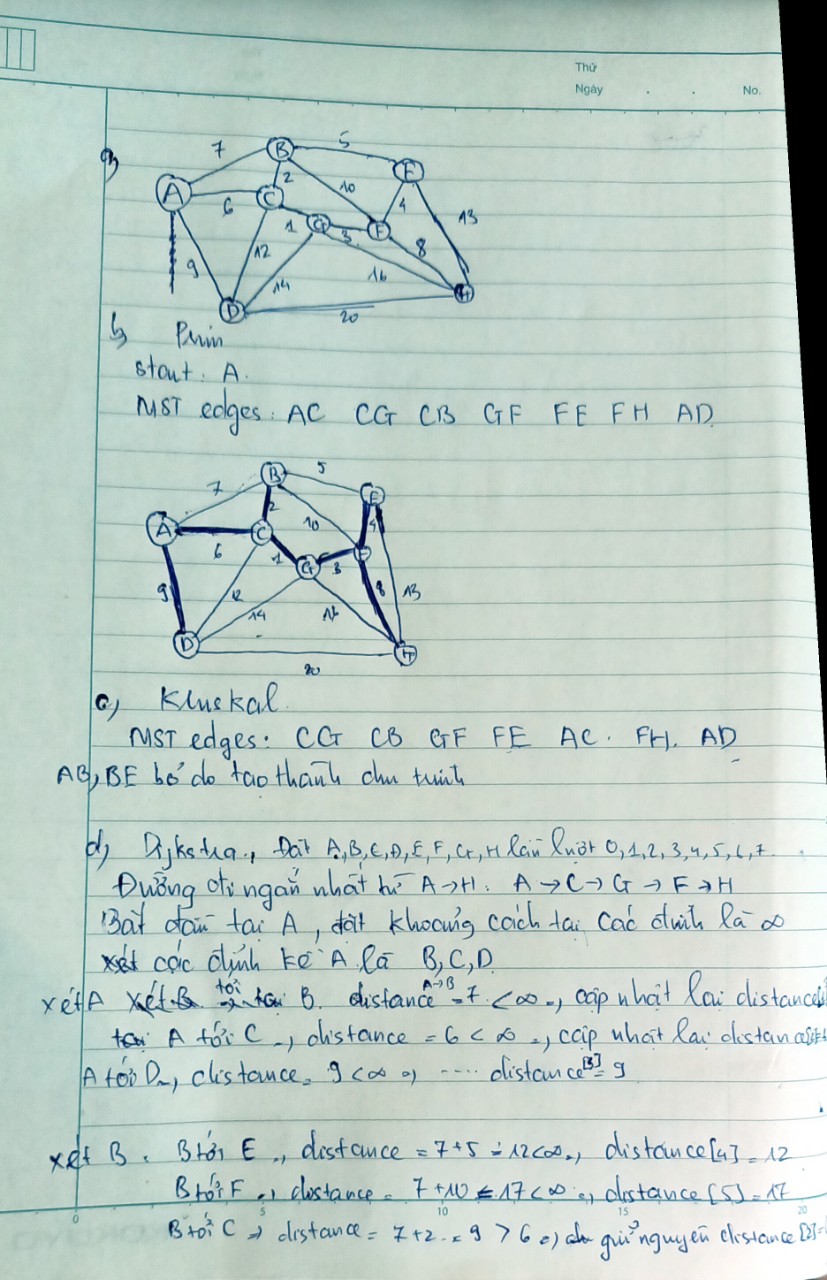 Thứ
Ngày . . No.
a)
7 B 5 E
A 6 C 2 10 4 13
1 G 3 F 8
9 12 14 16 H
D 20
b) Prim
start: A.
MST edges: AC CG CB GF FE FH AD
7 B 5 E
A 6 C 2 10 4
1 G 3 F 8 13
9 12 14 16
D 20 H
c) Kluskal
MST edges: CG CB GF FE AC. FH. AD
AB, BE bỏ do tạo thành chu trình
d) Dijkstra, Đặt A,B,C,D,E,F,G,H lần lượt 0,1,2,3,4,5,6,7
Đường đi ngắn nhất từ A→H: A → C → G → F → H
Bắt đầu tại A, đặt khoảng cách tại các đỉnh là ∞
xét các đỉnh kề A là B, C, D
xét A tới B. distance A→B = 7 < ∞ => cập nhật lại distance
A tới C => distance = 6 < ∞ => cập nhật lại distance
A tới D => distance = 9 < ∞ => .... distance[3] = 9
xét B. B tới E => distance = 7+5 = 12 < ∞ => distance[4] = 12
B tới F => distance = 7+10 = 17 < ∞ => distance[5] = 17
0 5 10 15 20
B tới C => distance = 7+2 = 9 > 6 => giữ nguyên distance[2] =